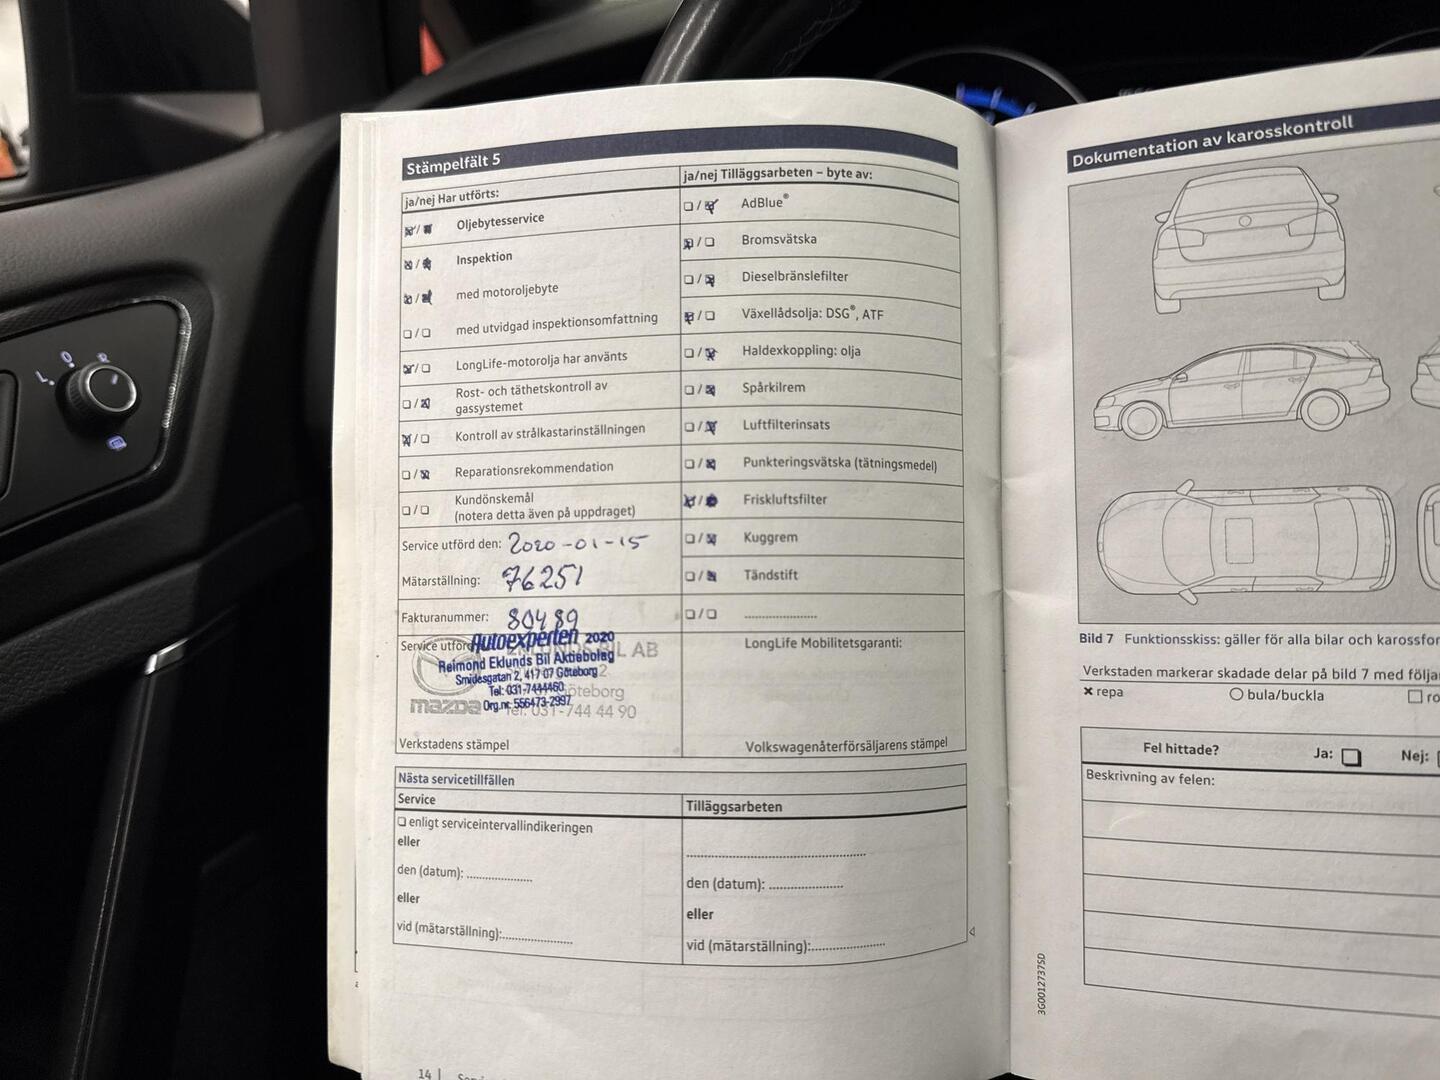 Stämpelfält 5
ja/nej Har utförts:
Oljebytesservice
Inspektion
med motoroljebyte
med utvidgad inspektionsomfattning
LongLife-motorolja har använts
Rost- och täthetskontroll av
gassystemet
Kontroll av strålkastarinställningen
Reparationsrekommendation
Kundönskemål
(notera detta även på uppdraget)
Service utförd den: 2020-01-15
Mätarställning: 76251
Fakturanummer: 80489
Service utförd
Autoexperten 2020
Reimond Eklunds Bil Aktiebolag
Smidesgatan 2, 417 07 Göteborg
Tel: 031-7444460
Org.nr: 556473-2997
EKLUNDS BIL AB
Göteborg
mazda Tel: 031-744 44 90
Verkstadens stämpel
ja/nej Tilläggsarbeten – byte av:
AdBlue®
Bromsvätska
Dieselbränslefilter
Växellådsolja: DSG®, ATF
Haldexkoppling: olja
Spårkilrem
Luftfilterinsats
Punkteringsvätska (tätningsmedel)
Friskluftsfilter
Kuggrem
Tändstift
LongLife Mobilitetsgaranti:
Volkswagenåterförsäljarens stämpel
Nästa servicetillfällen
Service
enligt serviceintervallindikeringen
eller
den (datum): ....................
eller
vid (mätarställning):....................
Tilläggsarbeten
den (datum): ....................
eller
vid (mätarställning):....................
14
Dokumentation av karosskontroll
Bild 7 Funktionsskiss: gäller för alla bilar och karossfor
Verkstaden markerar skadade delar på bild 7 med följa
repa
bula/buckla
ro
Fel hittade? Ja: Nej:
Beskrivning av felen:
3G0012737SD
L O R